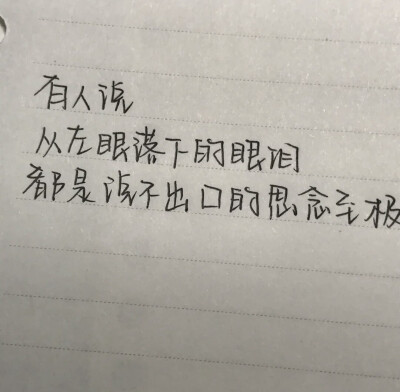 有人说
从左眼落下的眼泪
都是说不出口的思念至极